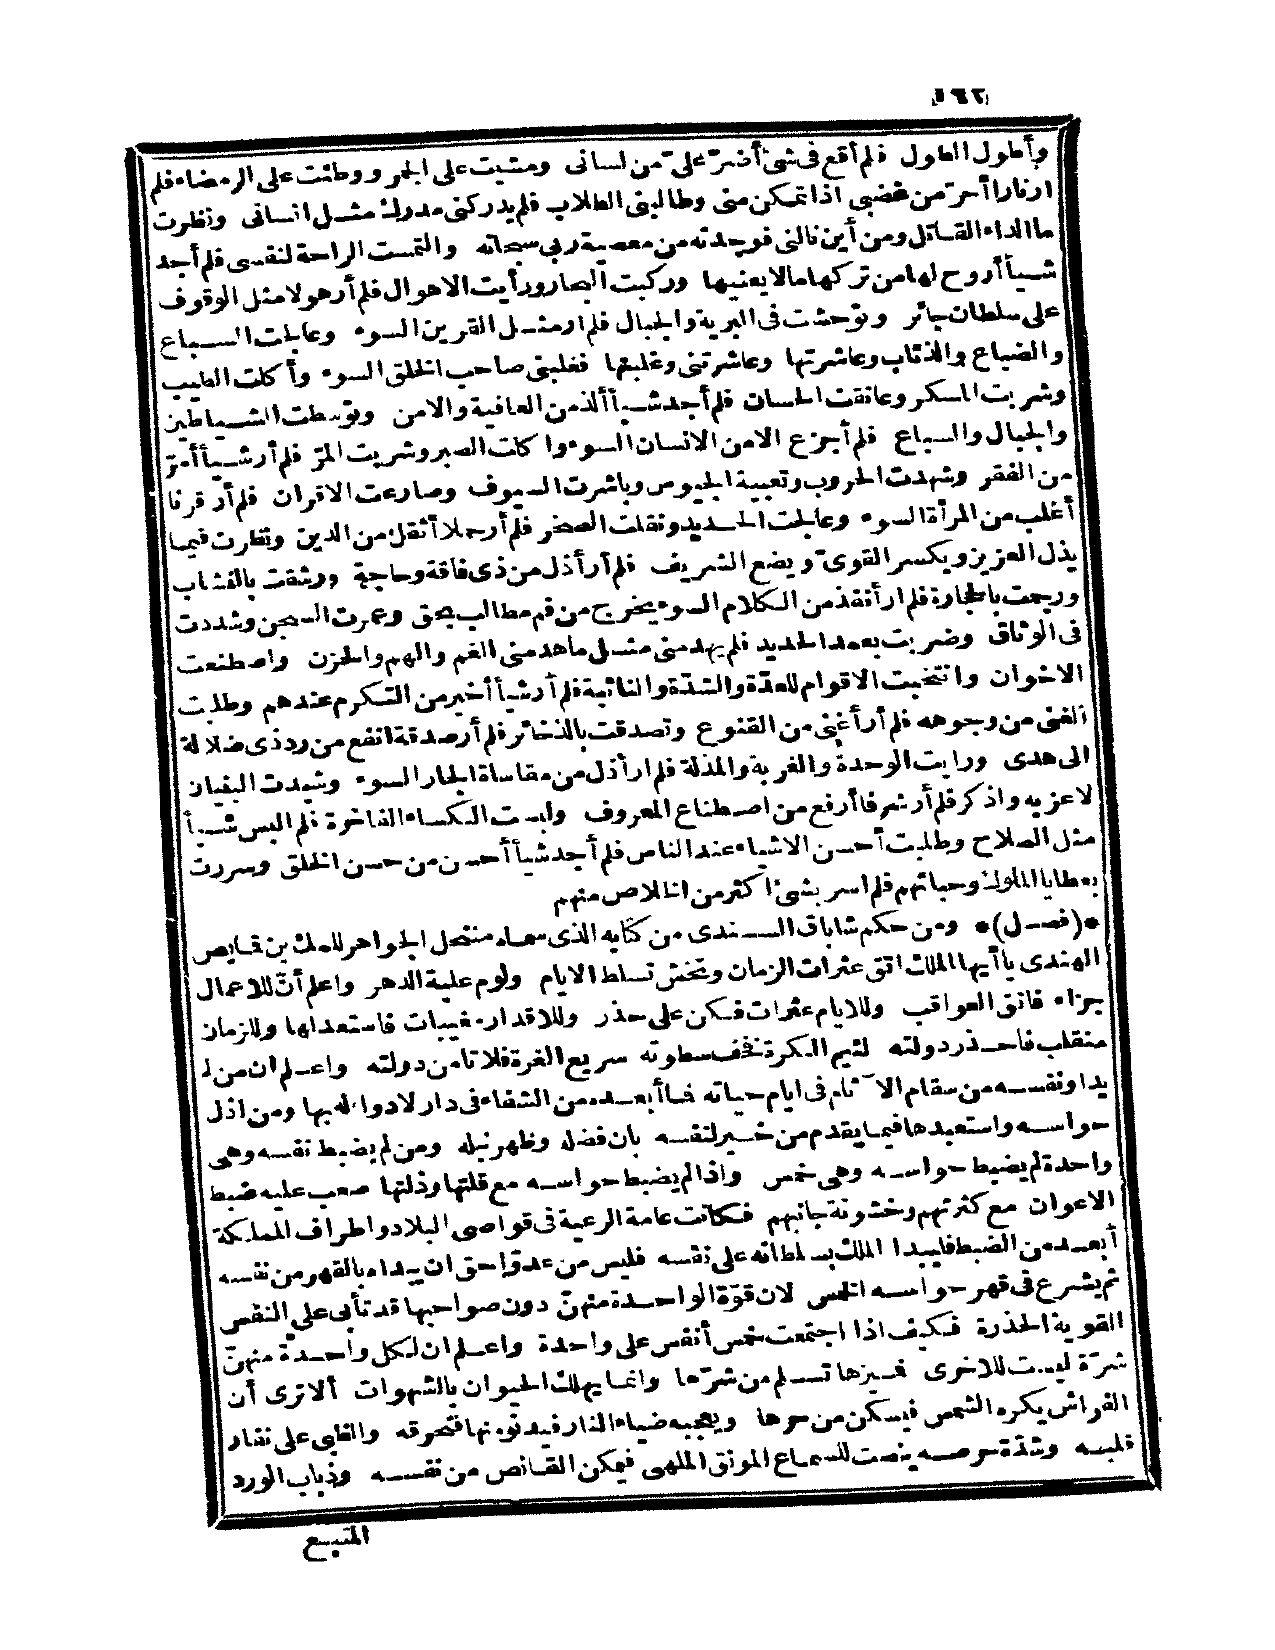 ١٦٢
وأطول الطول فلم أقع فى شئ أضرّ علىّ من لسانى ومشيت على الجمر ووطئت على الرمضاء فلم
ارنارا أحرّ من غضبى اذا تمكن منى وطالبنى الطلاب فلم يدركنى مدرك مثل انسانى ونظرت
ما الداء القاتل ومن أين نالنى فوجدته من معصية ربى سبحانه والتمست الراحة لنفسى فلم أجد
شيأ أروح لها من تركها مالا يعنيها وركبت البحار ورأيت الاهوال فلم أرهولا مثل الوقوف
على سلطان جائر وتوحشت فى البرية والجبال فلم ارمثل القرين السوء وعالجت السباع
والضباع والذئاب وعاشرتها وعاشرتنى وغلبتها فغلبنى صاحب الخلق السوء وأكلت الطيب
وشربت المسكر وعانقت الحسان فلم أجد شيأ ألذ من العافية والامن وتوسطت الشياطين
والجبال والسباع فلم أجزع الامن الانسان السوء واكلت الصبر وشربت المرّ فلم أرشيأ أمرّ
من الفقر وشهدت الحروب وتعبية الجيوس وباشرت السيوف وصارعت الاقران فلم أر قرنا
أغلب من المرأة السوء وعالجت الحديد ونقلت الصخر فلم أرحملا أثقل من الدين ونظرت فيما
يذل العزيز ويكسر القوىّ ويضع الشريف فلم أرأذل من ذى فاقة وحاجة ورشقت بالنشاب
ورجمت بالحجارة فلم ارأنفذ من الكلام السوء يخرج من فم مطالب بحق وعمرت السجن وشددت
فى الوثاق وضربت بعمد الحديد فلم يهدمنى مثل ماهدمنى الغم والهم والحزن واصطنعت
الاخوان وانتخبت الاقوام للعدّة والشدّة والنائبة فلم أرشيأ أخير من التكرم عندهم وطلبت
الغنى من وجوهه فلم أرأغنى من القنوع وتصدقت بالذخائر فلم أرصدقة انفع من رد ذى ضلالة
الى هدى ورايت الوحدة والغربة والمذلة فلم ارأذل من مقاساة الجار السوء وشيدت البنيان
لاعزبه واذكر فلم أرشرفا أرفع من اصطناع المعروف ولبست الكساء الفاخرة فلم البس شيأ
مثل الصلاح وطلبت أحسن الاشياء عند الناس فلم أجد شيأ أحسن من حسن الخلق وسررت
بعطايا الملوك وحبائهم فلم اسر بشئ اكثر من الخلاص منهم
*(فصل)* ومن حكم شاناق السندى من كتابه الذى سماه منتخل الجواهر للملك بن قايص
الهندى ياأيها الملك اتق عثرات الزمان وتخش تسلط الايام ولوم علية الدهر واعلم أنّ للاعمال
جزاء فاتق العواقب وللايام عثرات فكن على حذر وللاقدار مغيبات فاستعدلها وللزمان
منقلب فاحذر دولته لئيم الكرة فخف سطوته سريع الغرة فلا تامن دولته واعلم ان من لم
يداو نفسه من سقام الآثام فى ايام حياته فما أبعده من الشفاء فى دار لادواء له بها ومن اذل
حواسه واستعبدها فيما يقدم من خير لنفسه بان فضله وظهر نبله ومن لم يضبط نفسه وهى
واحدة لم يضبط حواسه وهى خمس واذا لم يضبط حواسه مع قلتها وذلتها صعب عليه ضبط
الاعوان مع كثرتهم وخشونة جانبهم فكانت عامة الرعية فى قواصى البلاد واطراف المملكة
أبعد من الضبط فليبدا الملك بسلطانه على نفسه فليس من عدوّ احق ان يبداه بالقهر من نفسه
ثم يشرع فى قهر حواسه الخمس لان قوّة الواحدة منهنّ دون صواحبها قد تأتى على النفس
القوية الحذرة فكيف اذا اجتمعت خمس أنفس على واحدة واعلم ان لكل واحدة منهنّ
شرّة ليست للاخرى فميزها تسلم من شرّها وانما يهلك الحيوان بالشهوات ألا ترى أن
الفراش يكره الشمس فيسكن من حرها ويعجبه ضياء النار فيدنو منها فتحرقه والظبى على نفار
قلبه وشدّة حرصه ينصت للسماع المونق الملهى فيمكن القانص من نفسه وذباب الورد
المتبع